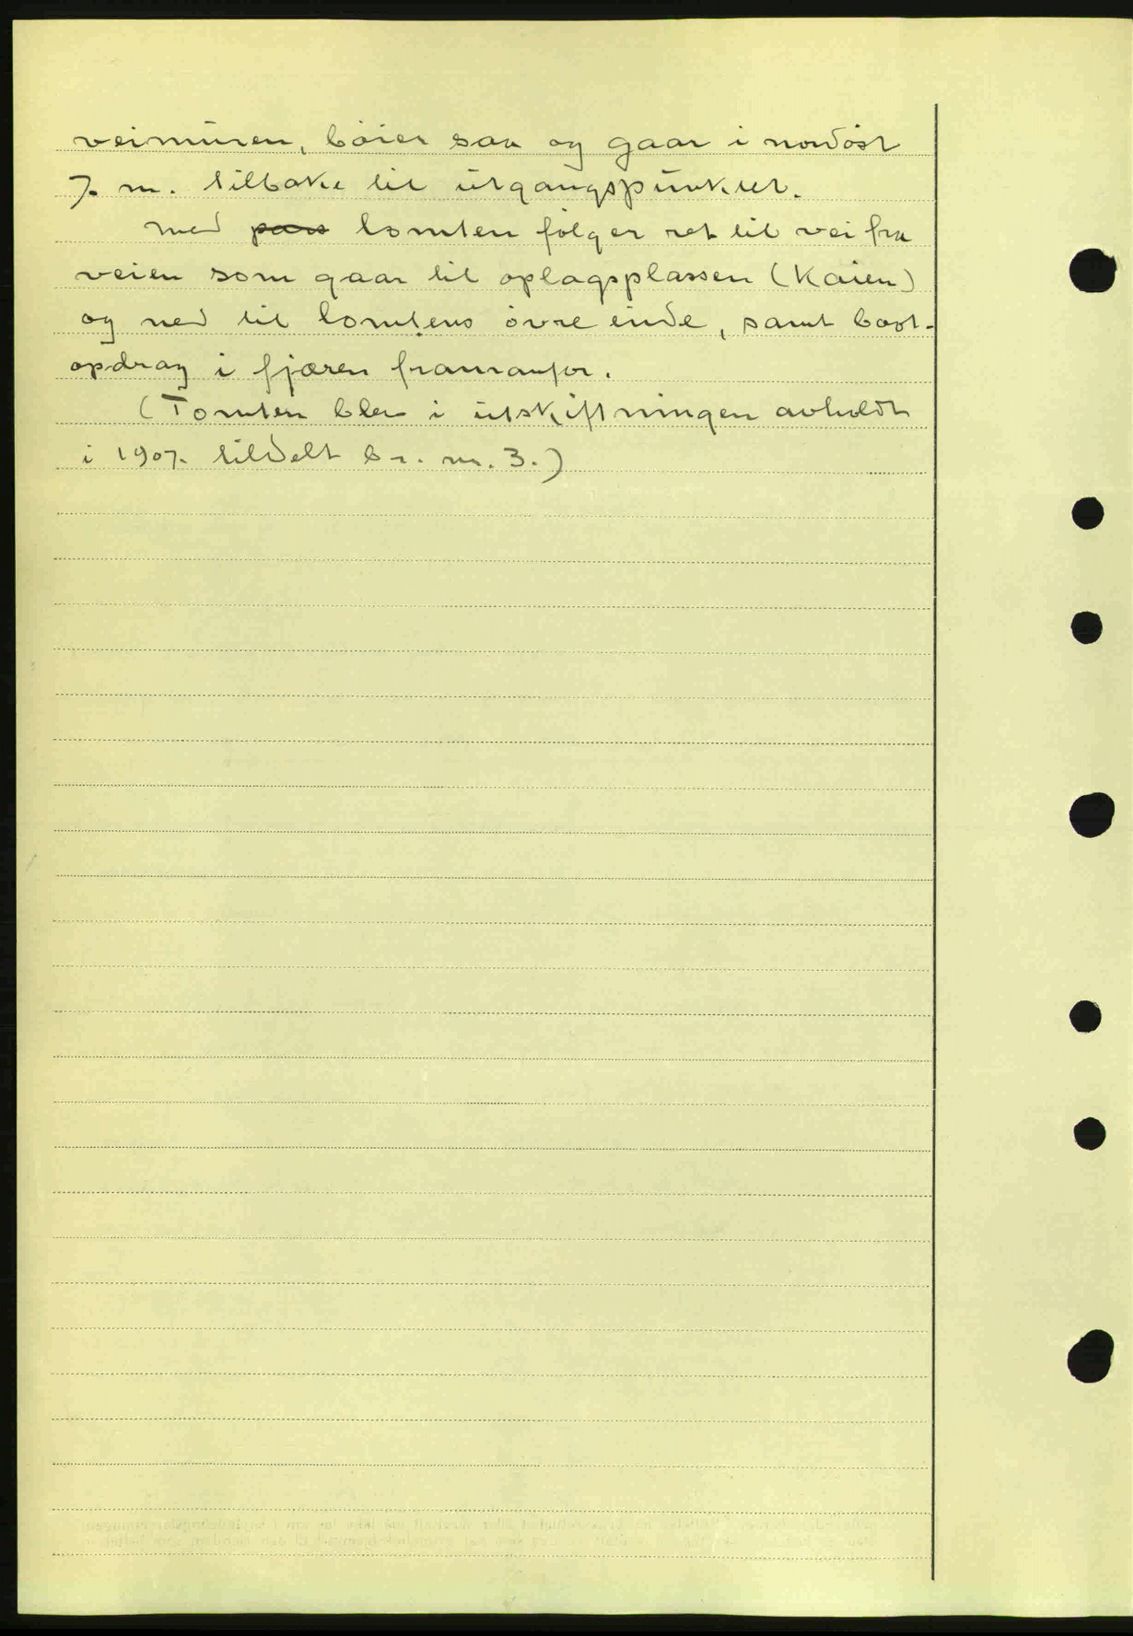 veimuren, bøier saa og gaar i nordøst
7. m. tilbake til utgangspunktet.
Med pars tomten følger ret til vei fra
veien som gaar til oplagsplassen (Kaien)
og ned til tomtens øvre ende, samt baat-
opdrag i fjæren framanfor.
(Tomten blev i utskiftningen avholdt
i 1907. tildelt br. nr. 3.)